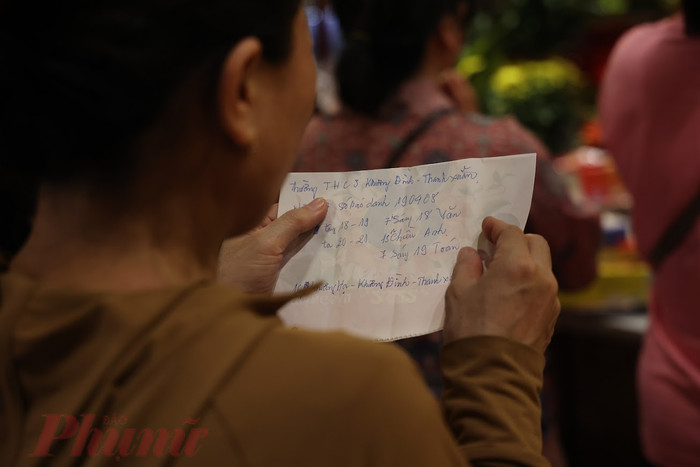 Trường THCS Khương Đình - Thanh Xuân
Số báo danh 190908
18-19 7 Sáng 18 Văn
20-21 Chiều Anh
7 Sáng 19 Toán
- Khương Đình - Thanh
BÁO
Phụ nữ